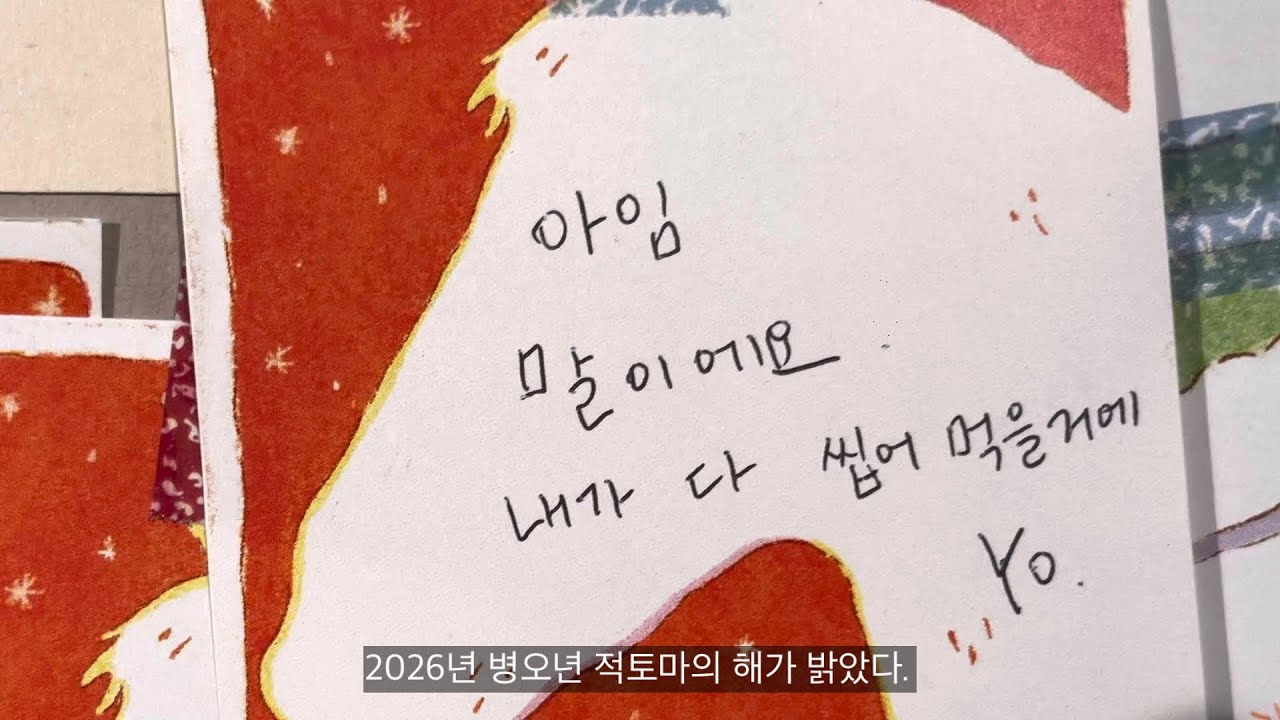 아임
말이에요.
내가 다 씹어 먹을거에
Yo.
2026년 병오년 적토마의 해가 밝았다.